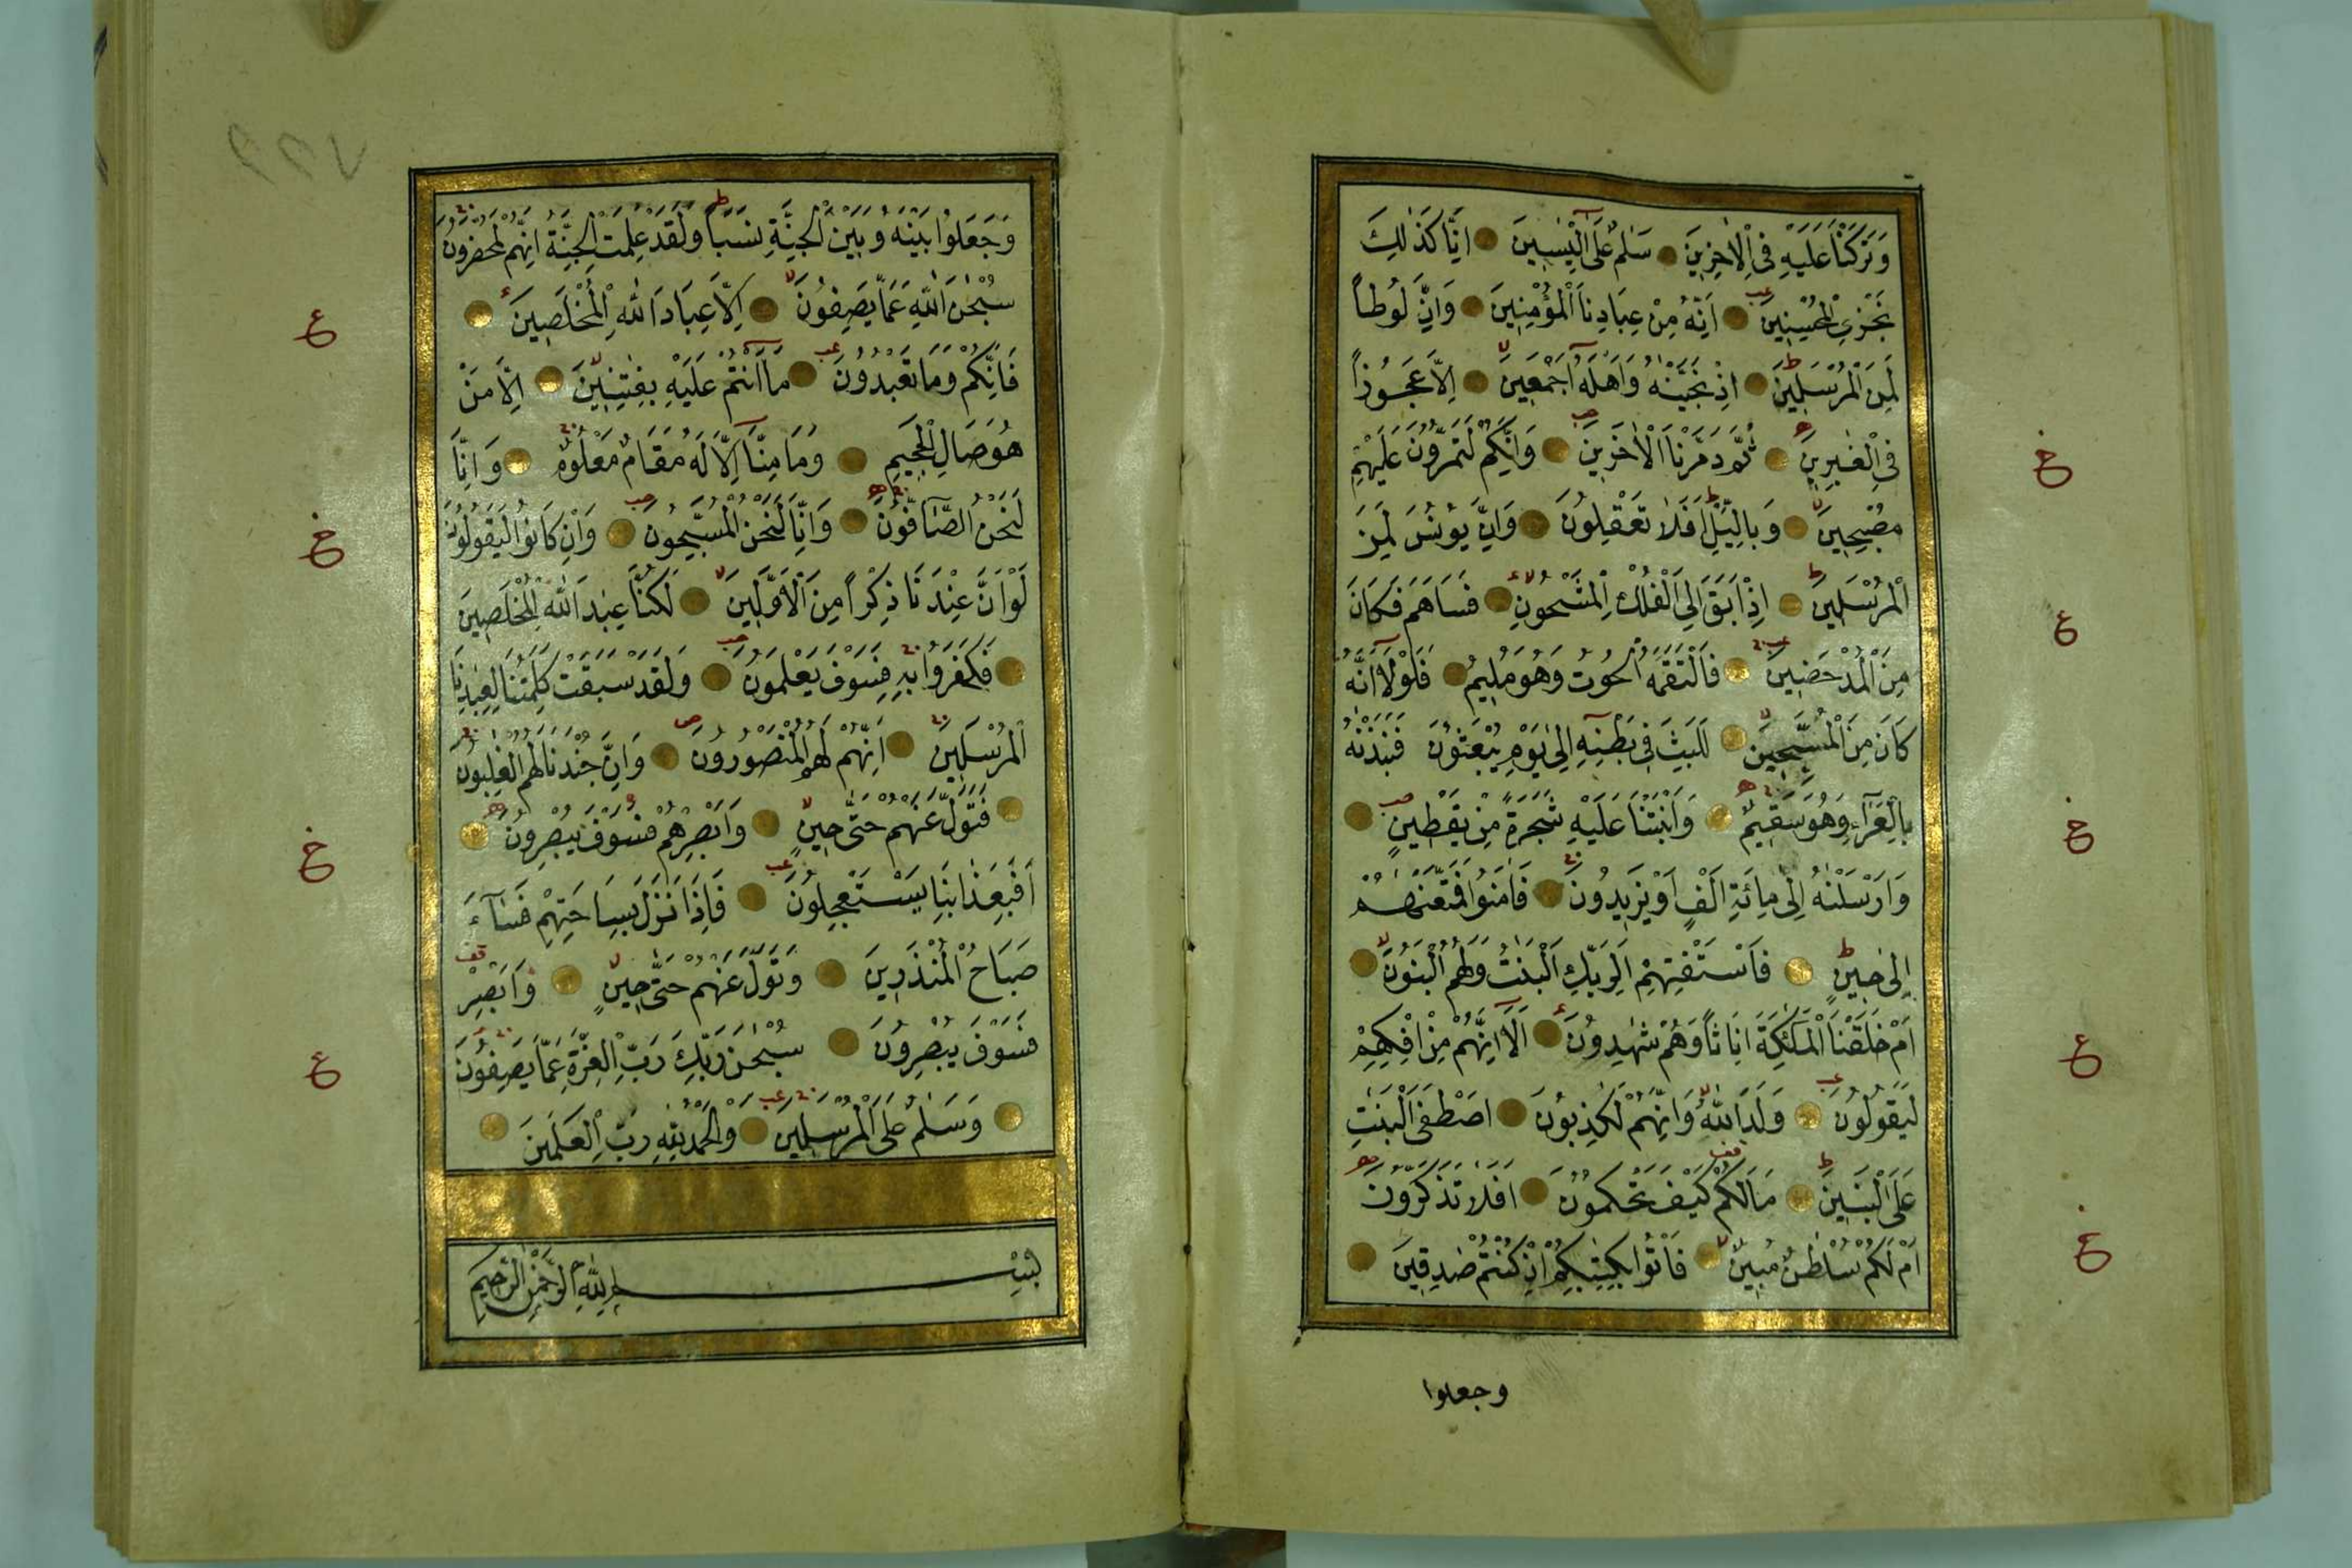 وَتَرَكْنَا عَلَيْهِ فِى الْاٰخِرِينَ سَلٰمٌ عَلٰٓى اِلْيَاسِينَ اِنَّا كَذٰلِكَ
نَجْزِى الْمُحْسِنِينَ اِنَّهُ مِنْ عِبَادِنَا الْمُؤْمِنِينَ وَاِنَّ لُوطاً
لَمِنَ الْمُرْسَلِينَ اِذْ نَجَّيْنٰهُ وَاَهْلَهُٓ اَجْمَعِينَ اِلَّا عَجُوزاً
فِى الْغٰبِرِينَ ثُمَّ دَمَّرْنَا الْاٰخَرِينَ وَاِنَّكُمْ لَتَمُرُّونَ عَلَيْهِمْ
مُصْبِحِينَ وَبِالَّيْلِ اَفَلَا تَعْقِلُونَ وَاِنَّ يُونُسَ لَمِنَ
الْمُرْسَلِينَ اِذْ اَبَقَ اِلَى الْفُلْكِ الْمَشْحُونِ فَسَاهَمَ فَكَانَ
مِنَ الْمُدْحَضِينَ فَالْتَقَمَهُ الْحُوتُ وَهُوَ مُلِيمٌ فَلَوْلَٓا اَنَّهُ
كَانَ مِنَ الْمُسَبِّحِينَ لَلَبِثَ فِى بَطْنِهِٓ اِلٰى يَوْمِ يُبْعَثُونَ فَنَبَذْنٰهُ
بِالْعَرَٓاءِ وَهُوَ سَقِيمٌ وَاَنْبَتْنَا عَلَيْهِ شَجَرَةً مِنْ يَقْطِينٍ
وَاَرْسَلْنٰهُ اِلٰى مِائَةِ اَلْفٍ اَوْ يَزِيدُونَ فَاٰمَنُوا فَمَتَّعْنٰهُمْ
اِلٰى حِينٍ فَاسْتَفْتِهِمْ اَلِرَبِّكَ الْبَنَاتُ وَلَهُمُ الْبَنُونَ
اَمْ خَلَقْنَا الْمَلٰٓئِكَةَ اِنَاثاً وَهُمْ شٰهِدُونَ اَلَٓا اِنَّهُمْ مِنْ اِفْكِهِمْ
لَيَقُولُونَ وَلَدَ اللّٰهُ وَاِنَّهُمْ لَكٰذِبُونَ اَصْطَفَى الْبَنَاتِ
عَلَى الْبَنِينَ مَا لَكُمْ كَيْفَ تَحْكُمُونَ اَفَلَا تَذَكَّرُونَ
اَمْ لَكُمْ سُلْطٰنٌ مُبِينٌ فَأْتُوا بِكِتٰبِكُمْ اِنْ كُنْتُمْ صٰدِقِينَ
وجعلوا
وَجَعَلُوا بَيْنَهُ وَبَيْنَ الْجِنَّةِ نَسَباً وَلَقَدْ عَلِمَتِ الْجِنَّةُ اِنَّهُمْ لَمُحْضَرُونَ
سُبْحٰنَ اللّٰهِ عَمَّا يَصِفُونَ اِلَّا عِبَادَ اللّٰهِ الْمُخْلَصِينَ
فَاِنَّكُمْ وَمَا تَعْبُدُونَ مَٓا اَنْتُمْ عَلَيْهِ بِفٰتِنِينَ اِلَّا مَنْ
هُوَ صَالِ الْجَحِيمِ وَمَا مِنَّٓا اِلَّا لَهُ مَقَامٌ مَعْلُومٌ وَاِنَّا
لَنَحْنُ الصَّٓافُّونَ وَاِنَّا لَنَحْنُ الْمُسَبِّحُونَ وَاِنْ كَانُوا لَيَقُولُونَ
لَوْ اَنَّ عِنْدَنَا ذِكْراً مِنَ الْاَوَّلِينَ لَكُنَّا عِبَادَ اللّٰهِ الْمُخْلَصِينَ
فَكَفَرُوا بِهِ فَسَوْفَ يَعْلَمُونَ وَلَقَدْ سَبَقَتْ كَلِمَتُنَا لِعِبَادِنَا
الْمُرْسَلِينَ اِنَّهُمْ لَهُمُ الْمَنْصُورُونَ وَاِنَّ جُنْدَنَا لَهُمُ الْغٰلِبُونَ
فَتَوَلَّ عَنْهُمْ حَتّٰى حِينٍ وَاَبْصِرْهُمْ فَسَوْفَ يُبْصِرُونَ
اَفَبِعَذَابِنَا يَسْتَعْجِلُونَ فَاِذَا نَزَلَ بِسَاحَتِهِمْ فَسَٓاءَ
صَبَاحُ الْمُنْذَرِينَ وَتَوَلَّ عَنْهُمْ حَتّٰى حِينٍ وَاَبْصِرْ
فَسَوْفَ يُبْصِرُونَ سُبْحٰنَ رَبِّكَ رَبِّ الْعِزَّةِ عَمَّا يَصِفُونَ
وَسَلٰمٌ عَلَى الْمُرْسَلِينَ وَالْحَمْدُ لِلّٰهِ رَبِّ الْعٰلَمِينَ
بِسْمِ اللّٰهِ الرَّحْمٰنِ الرَّحِيمِ